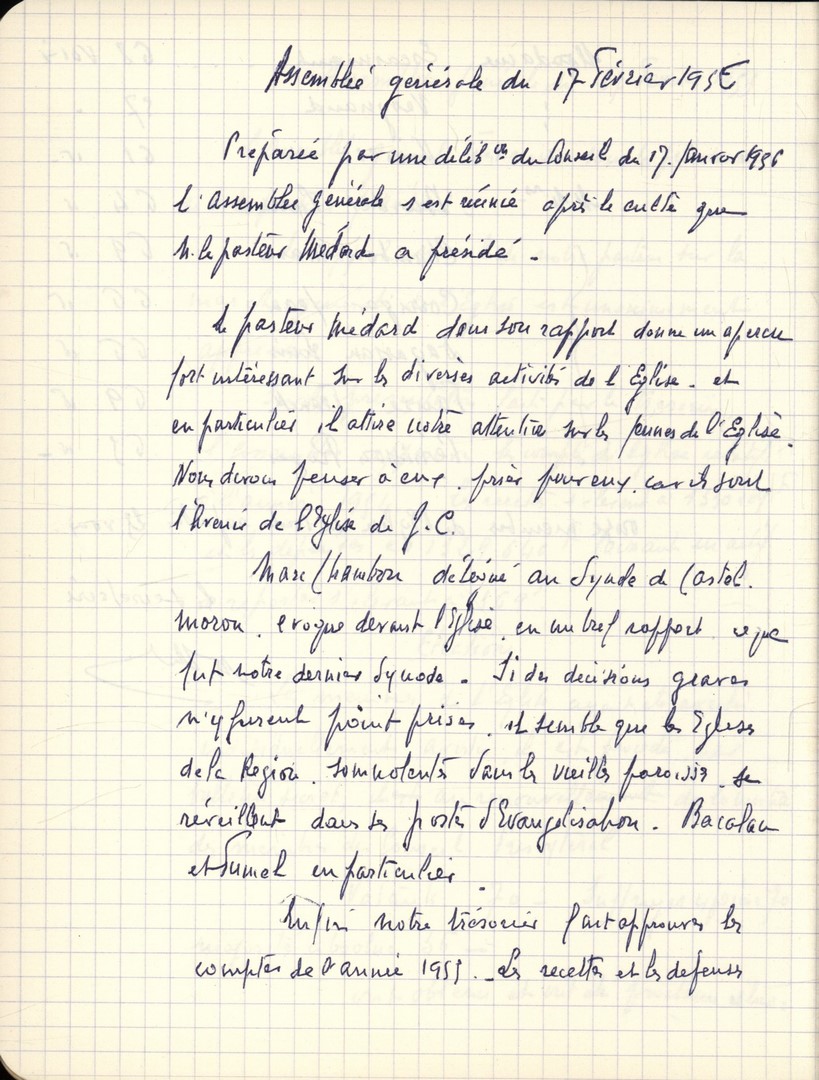 Assemblée générale du 17 Février 1956
Préparée par une délib on du Conseil du 17. Janvier 1956
l'Assemblée générale s'est réunie après le culte que
M. le pasteur Médard a présidé.
Le pasteur Médard dans son rapport donne un apercu
fort intéressant sur les diverses activités de l'Eglise. et
en particulier il attire notre attention sur les jeunes de l'Eglise.
Nous devons penser à eux. prier pour eux. car ils sont
l'Avenir de l'Eglise de J.C.
Marc Chambon délégué au Synode de Castel.
moron. evoque devant l'Eglise, en un bref rapport. ce que
fut notre dernier Synode. Si des décisions graves
n'y furent point prises. il semble que les Eglises
de la Région. somnolentes dans les vieilles paroisses. se
réveillent dans les postes d'Evangelisation. Bacalan
et Fumel en particulier.
Enfin notre trésorier fait approuver les
comptes de l'année 1955. Les recettes et les depenses